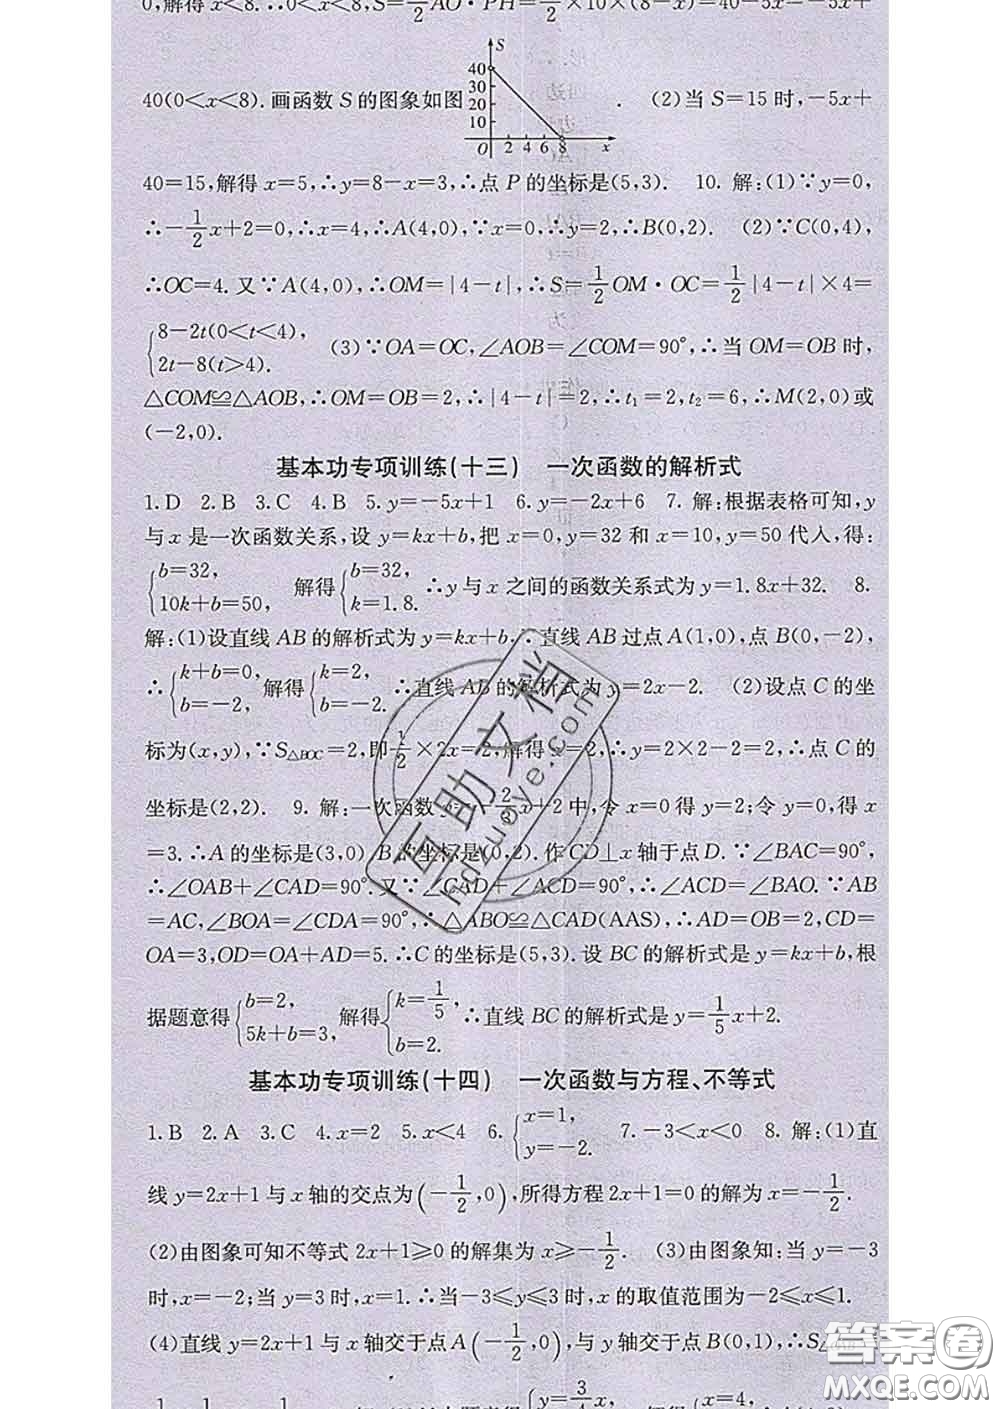 0,解得 x<8.∴0<x<8,S=1/2 AO·PH=1/2×10×(8-x)=40-5x=-5x+
S
40
30
20
10
O 2 4 6 8 x
40(0<x<8).画函数 S 的图象如图 . (2)当 S=15 时,-5x+
40=15,解得 x=5,∴y=8-x=3,∴点 P 的坐标是(5,3). 10. 解:(1)∵y=0,
∴-1/2x+2=0,∴x=4,∴A(4,0),∵x=0,∴y=2,∴B(0,2). (2)∵C(0,4),
∴OC=4.又∵A(4,0),∴OM=|4-t|,∴S=1/2OM·OC=1/2|4-t|×4=
{8-2t(0<t<4),
2t-8(t>4). (3)∵OA=OC,∠AOB=∠COM=90°,∴当 OM=OB 时,
△COM≌△AOB,∴OM=OB=2,∴|4-t|=2,∴t₁=2,t₂=6,∴M(2,0)或
(-2,0).
基本功专项训练(十三) 一次函数的解析式
1.D 2.B 3.C 4.B 5.y=-5x+1 6.y=-2x+6 7. 解:根据表格可知,y
与 x 是一次函数关系,设 y=kx+b,把 x=0,y=32 和 x=10,y=50 代入,得:
{b=32, 10k+b=50, 解得{b=32, k=1.8. ∴y 与 x 之间的函数关系式为 y=1.8x+32. 8.
解:(1)设直线 AB 的解析式为 y=kx+b,∵直线 AB 过点 A(1,0),点 B(0,-2),
∴{k+b=0, b=-2, 解得{k=2, b=-2. ∴直线 AB 的解析式为 y=2x-2. (2)设点 C 的坐
标为(x,y),∵S△BOC=2,即1/2×2x=2,解得 x=2,∴y=2×2-2=2,∴点 C 的
坐标是(2,2). 9. 解:一次函数 y=-2/3x+2 中,令 x=0 得 y=2;令 y=0,得 x
=3.∴A 的坐标是(3,0) B 的坐标是(0,2).作 CD⊥x 轴于点 D.∵∠BAC=90°,
∴∠OAB+∠CAD=90°.又∵∠CAD+∠ACD=90°,∴∠ACD=∠BAO.∵AB
=AC,∠BOA=∠CDA=90°,∴△ABO≌△CAD(AAS),∴AD=OB=2,CD=
OA=3,OD=OA+AD=5.∴C 的坐标是(5,3).设 BC 的解析式是 y=kx+b,根
据题意得{b=2, 5k+b=3, 解得{k=1/5, b=2. ∴直线 BC 的解析式是 y=1/5x+2.
基本功专项训练(十四) 一次函数与方程、不等式
1.B 2.A 3.C 4.x=2 5.x<4 6.{x=1, y=-2. 7.-3<x<0 8. 解:(1)直
线 y=2x+1 与 x 轴的交点为(-1/2,0),所得方程 2x+1=0 的解为 x=-1/2.
(2)由图象可知不等式 2x+1≥0 的解集为 x≥-1/2. (3)由图象知:当 y=-3
时,x=-2;当 y=3 时,x=1.∴当-3≤y≤3 时,x 的取值范围为-2≤x≤1.
(4)直线 y=2x+1 与 x 轴交于点 A(-1/2,0),与 y 轴交于点 B(0,1),∴S
{y=3/4x, {x=4,
互助文档
hdzuoye.com
答案圈
MXQE.COM